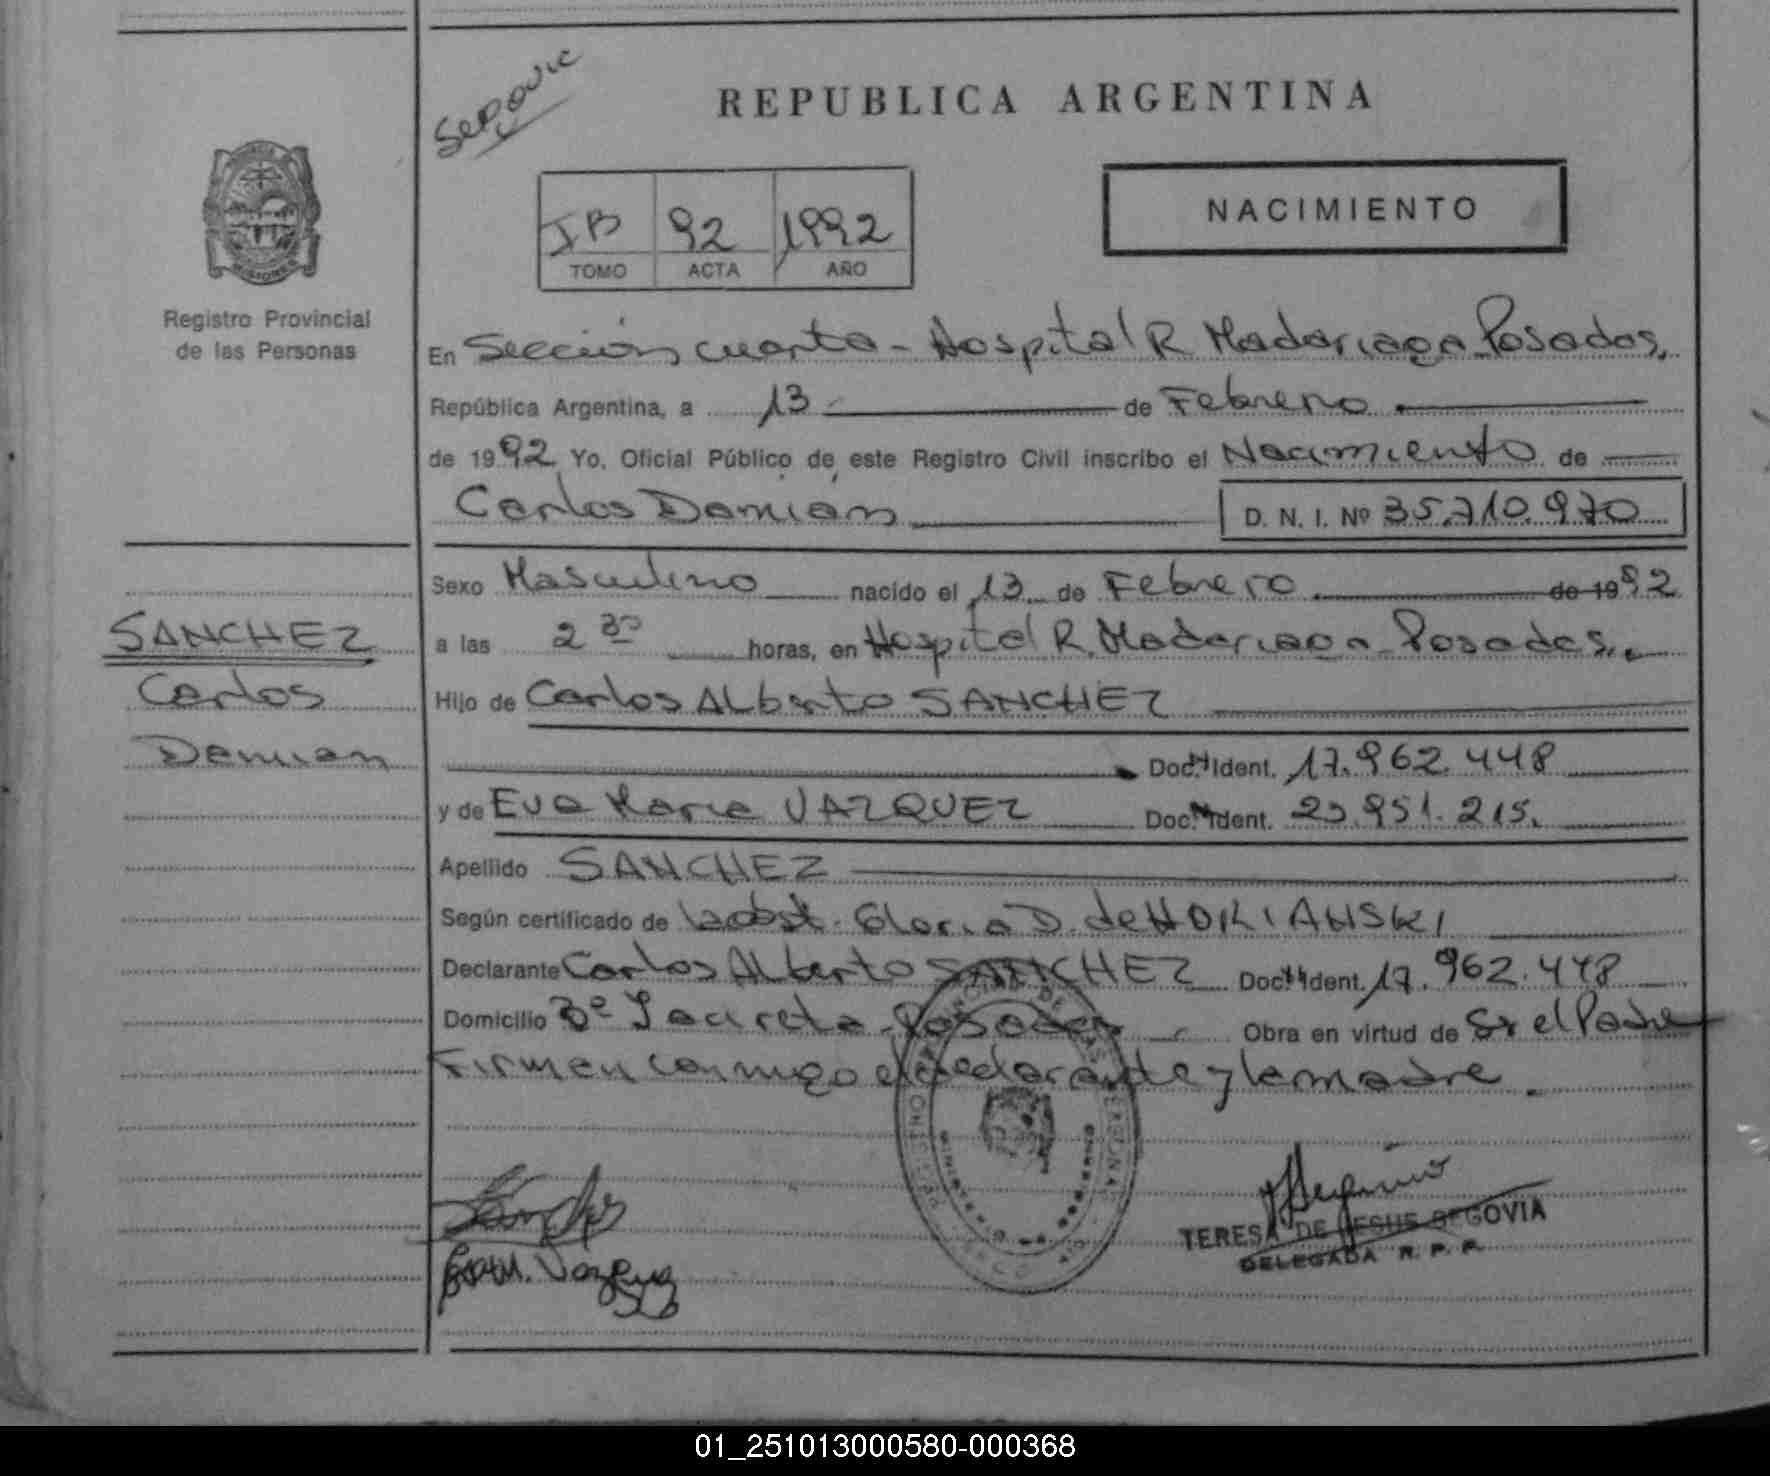 REPUBLICA ARGENTINA
NACIMIENTO
IB 92 1992
TOMO ACTA AÑO
Registro Provincial
de las Personas
En Sección cuarta - Hospital R Madariaga Posadas,
República Argentina, a 13 de Febrero
de 1992 Yo, Oficial Público de este Registro Civil inscribo el Nacimiento de
Carlos Damián D. N. I. Nº 35.710.970
Sexo Masculino nacido el 13 de Febrero de 1992
a las 2 30 horas, en Hospital R. Madariaga - Posadas.
SANCHEZ
Carlos
Damian
Hijo de Carlos Alberto SANCHEZ
Doc. Ident. 17.962.448
y de Eva Maria VAZQUEZ Doc. Ident. 23.951.215.
Apellido SANCHEZ
Según certificado de la obst. Gloria D. de
Declarante Carlos Alberto SANCHEZ Doc. Ident. 17.962.448
Domicilio Posadas Obra en virtud de Sr el Padre
Firman conmigo el declarante y la madre.
TERESA DE JESUS SEGOVIA
DELEGADA R. P. P.
01_251013000580-000368